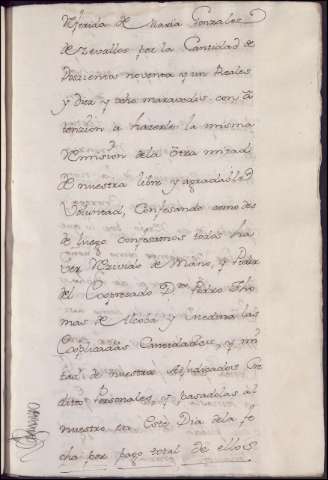 Referida de Maria Gonzalez
de zevallos por la Cantidad de
Doscientos noventa y un Reales
y Diez y ocho maravedis con ā
tenzion a hazerle la misma
Remision dela otra mitad
de nuestra libre y agradable
Voluntad, Confesando como des
de luego confesamos todos ha
ver Rezivido de Mano, y Poder
del Expresado Dn Pedro Tho
mas de Alcoba y Medina las
Explicadas Cantidades, y mi
tad de nuestros Adjudicados Cre
ditos Personales, y pasadolas al
nuestro en este Dia dela fe
cha por pago total de ellos